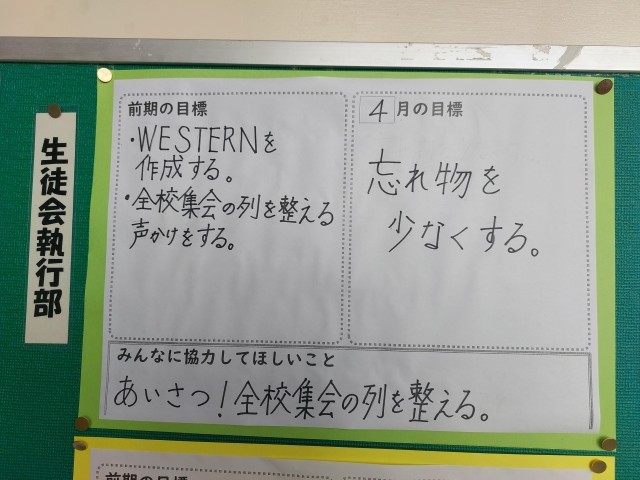 生徒会執行部
前期の目標
・WESTERNを
作成する。
・全校集会の列を整える
声かけをする。
4月の目標
忘れ物を
少なくする。
みんなに協力してほしいこと
あいさつ!全校集会の列を整える。
前期の目標